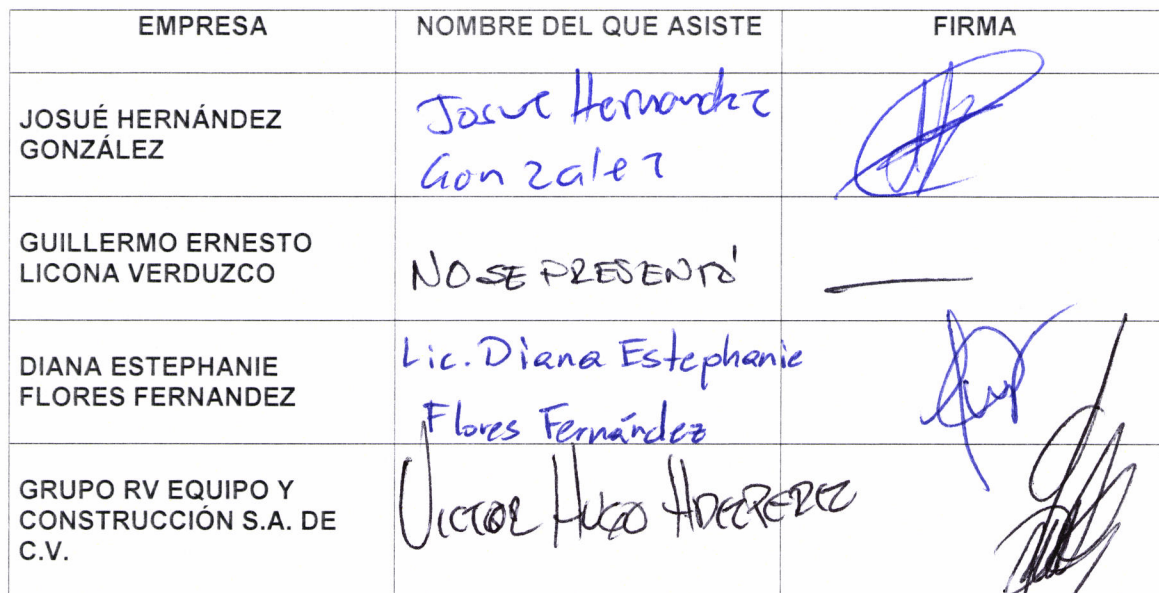 EMPRESA NOMBRE DEL QUE ASISTE FIRMA
JOSUÉ HERNÁNDEZ
GONZÁLEZ
Josue Hernandez
Gonzalez
GUILLERMO ERNESTO
LICONA VERDUZCO
NO SE PRESENTÓ
DIANA ESTEPHANIE
FLORES FERNANDEZ
Lic. Diana Estephanie
Flores Fernández
GRUPO RV EQUIPO Y
CONSTRUCCIÓN S.A. DE
C.V.
VICTOR HUGO